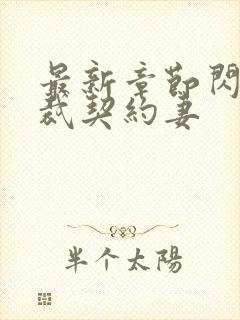 最新章節閃
裁契約妻
半个太陽